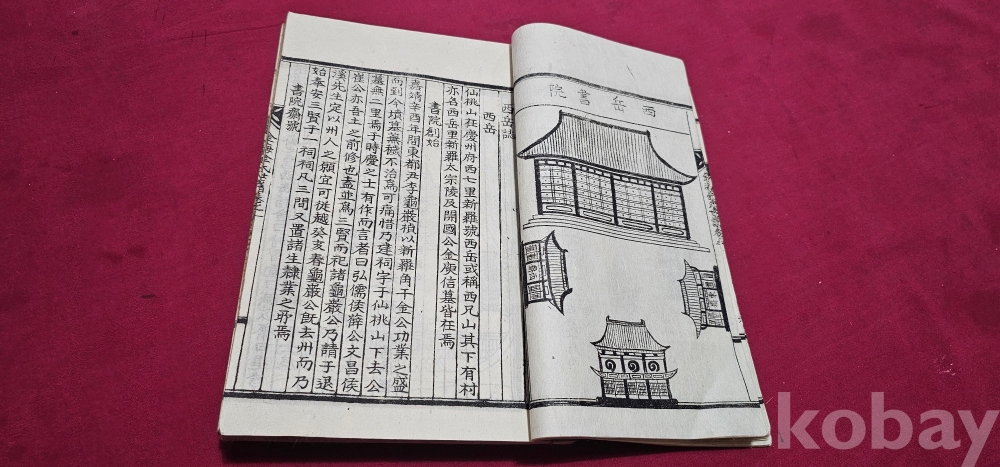 院書岳西
西岳誌
西岳
仙桃山在慶州府西七里新羅號西岳或稱西兄山其下有村
亦名西岳里新羅太宗陵及開國公金庾信墓皆在焉
書院創始
嘉靖辛酉年間東都尹李龜巖禎以新羅角干金公功業之盛
而到今墳墓蕪穢不治爲可痛惜乃建祠宇于仙桃山下去公
墓無二里焉于時慶之士有作而言者曰弘儒侯薛公文昌侯
崔公亦吾土之前修也盍並爲三賢而祀諸龜巖公乃請于退
溪先生定以州人之願宜可從越癸亥春龜巖公旣去州而乃
始奉安三賢于一祠祠凡三間又置諸生隷業之所焉
書院齋號
kobay